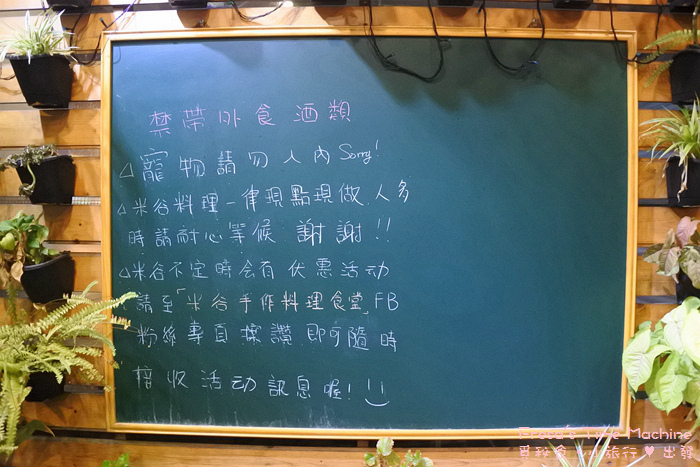 禁帶外食酒類
△寵物請勿入內 Sorry!
△米谷料理一律現點現做.人多
時請耐心等候 謝謝!!
△米谷不定時会有优惠活动
請至「米谷手作料理食堂」FB
粉絲專頁按讚.即可隨時
接收活动訊息喔!
Time Machine
小旅行♥出發